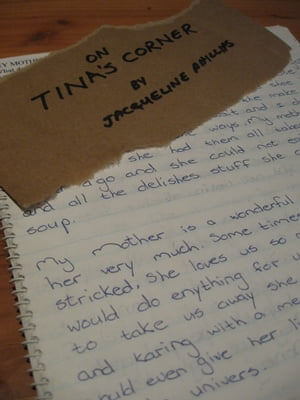 ON
TINA'S CORNER
BY
JACQUELINE PHILLIPS
she make
and s
ways. my mot
she had them all take
ago and she could not e
and all the delishes stuff she c
soup.
My mother is a wonderful
her very much. Some times
stricked, she loves us so
would do enything for u
to take us away she
and karing with a me
ould even give her li
univers.